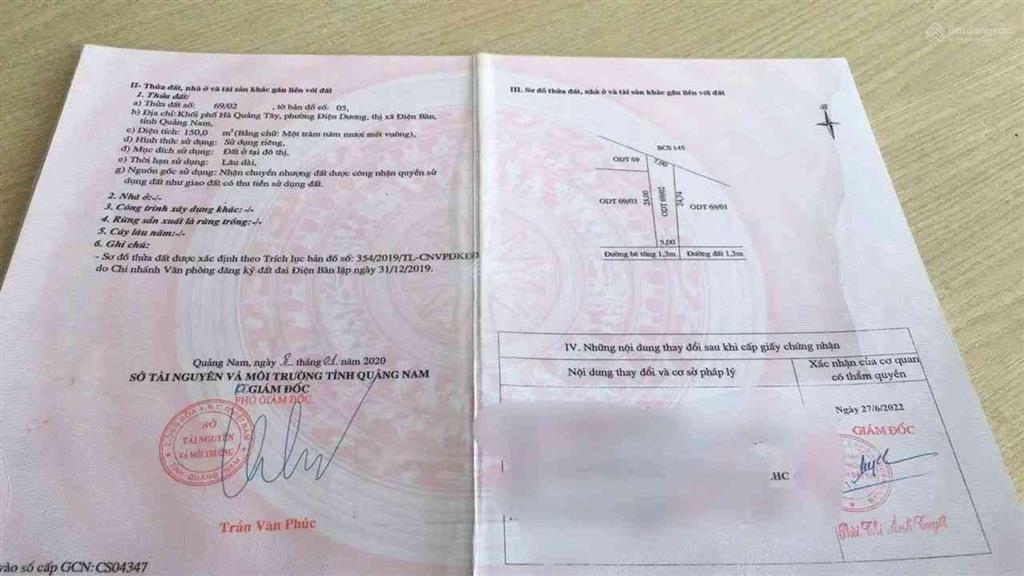 II- Thửa đất, nhà ở và tài sản khác gắn liền với đất
1. Thửa đất:
a) Thửa đất số: 69/02 , tờ bản đồ số: 05,
b) Địa chỉ: Khối phố Hà Quảng Tây, phường Điện Dương, thị xã Điện Bàn,
tỉnh Quảng Nam,
c) Diện tích: 150,0 m² (Bằng chữ: Một trăm năm mươi mét vuông),
d) Hình thức sử dụng: Sử dụng riêng,
đ) Mục đích sử dụng: Đất ở tại đô thị,
e) Thời hạn sử dụng: Lâu dài,
g) Nguồn gốc sử dụng: Nhận chuyển nhượng đất được công nhận quyền sử
dụng đất như giao đất có thu tiền sử dụng đất.
2. Nhà ở:-/-
3. Công trình xây dựng khác:-/-
4. Rừng sản xuất là rừng trồng:-/-
5. Cây lâu năm:-/-
6. Ghi chú:
- Sơ đồ thửa đất được xác định theo Trích lục bản đồ số: 354/2019/TL-CNVPĐKĐĐ
do Chi nhánh Văn phòng đăng ký đất đai Điện Bàn lập ngày 31/12/2019.
Quảng Nam, ngày 8 tháng 01 năm 2020
SỞ TÀI NGUYÊN VÀ MÔI TRƯỜNG TỈNH QUẢNG NAM
KT.GIÁM ĐỐC
PHÓ GIÁM ĐỐC
SỞ
TÀI NGUYÊN
VÀ MÔI TRƯỜNG
TỈNH QUẢNG NAM
Trần Văn Phúc
vào sổ cấp GCN: CS04347
III. Sơ đồ thửa đất, nhà ở và tài sản khác gắn liền với đất
BCS 145
ODT 69
7,00
ODT 69/03
28,00
ODT 69/02
24,74
ODT 69/01
5,00
Đường bê tông 1,3m
Đường đất 1,3m
IV. Những nội dung thay đổi sau khi cấp giấy chứng nhận
Nội dung thay đổi và cơ sở pháp lý
Xác nhận của cơ quan
có thẩm quyền
Ngày 27/6/2022
GIÁM ĐỐC
.HC
Batdongsan